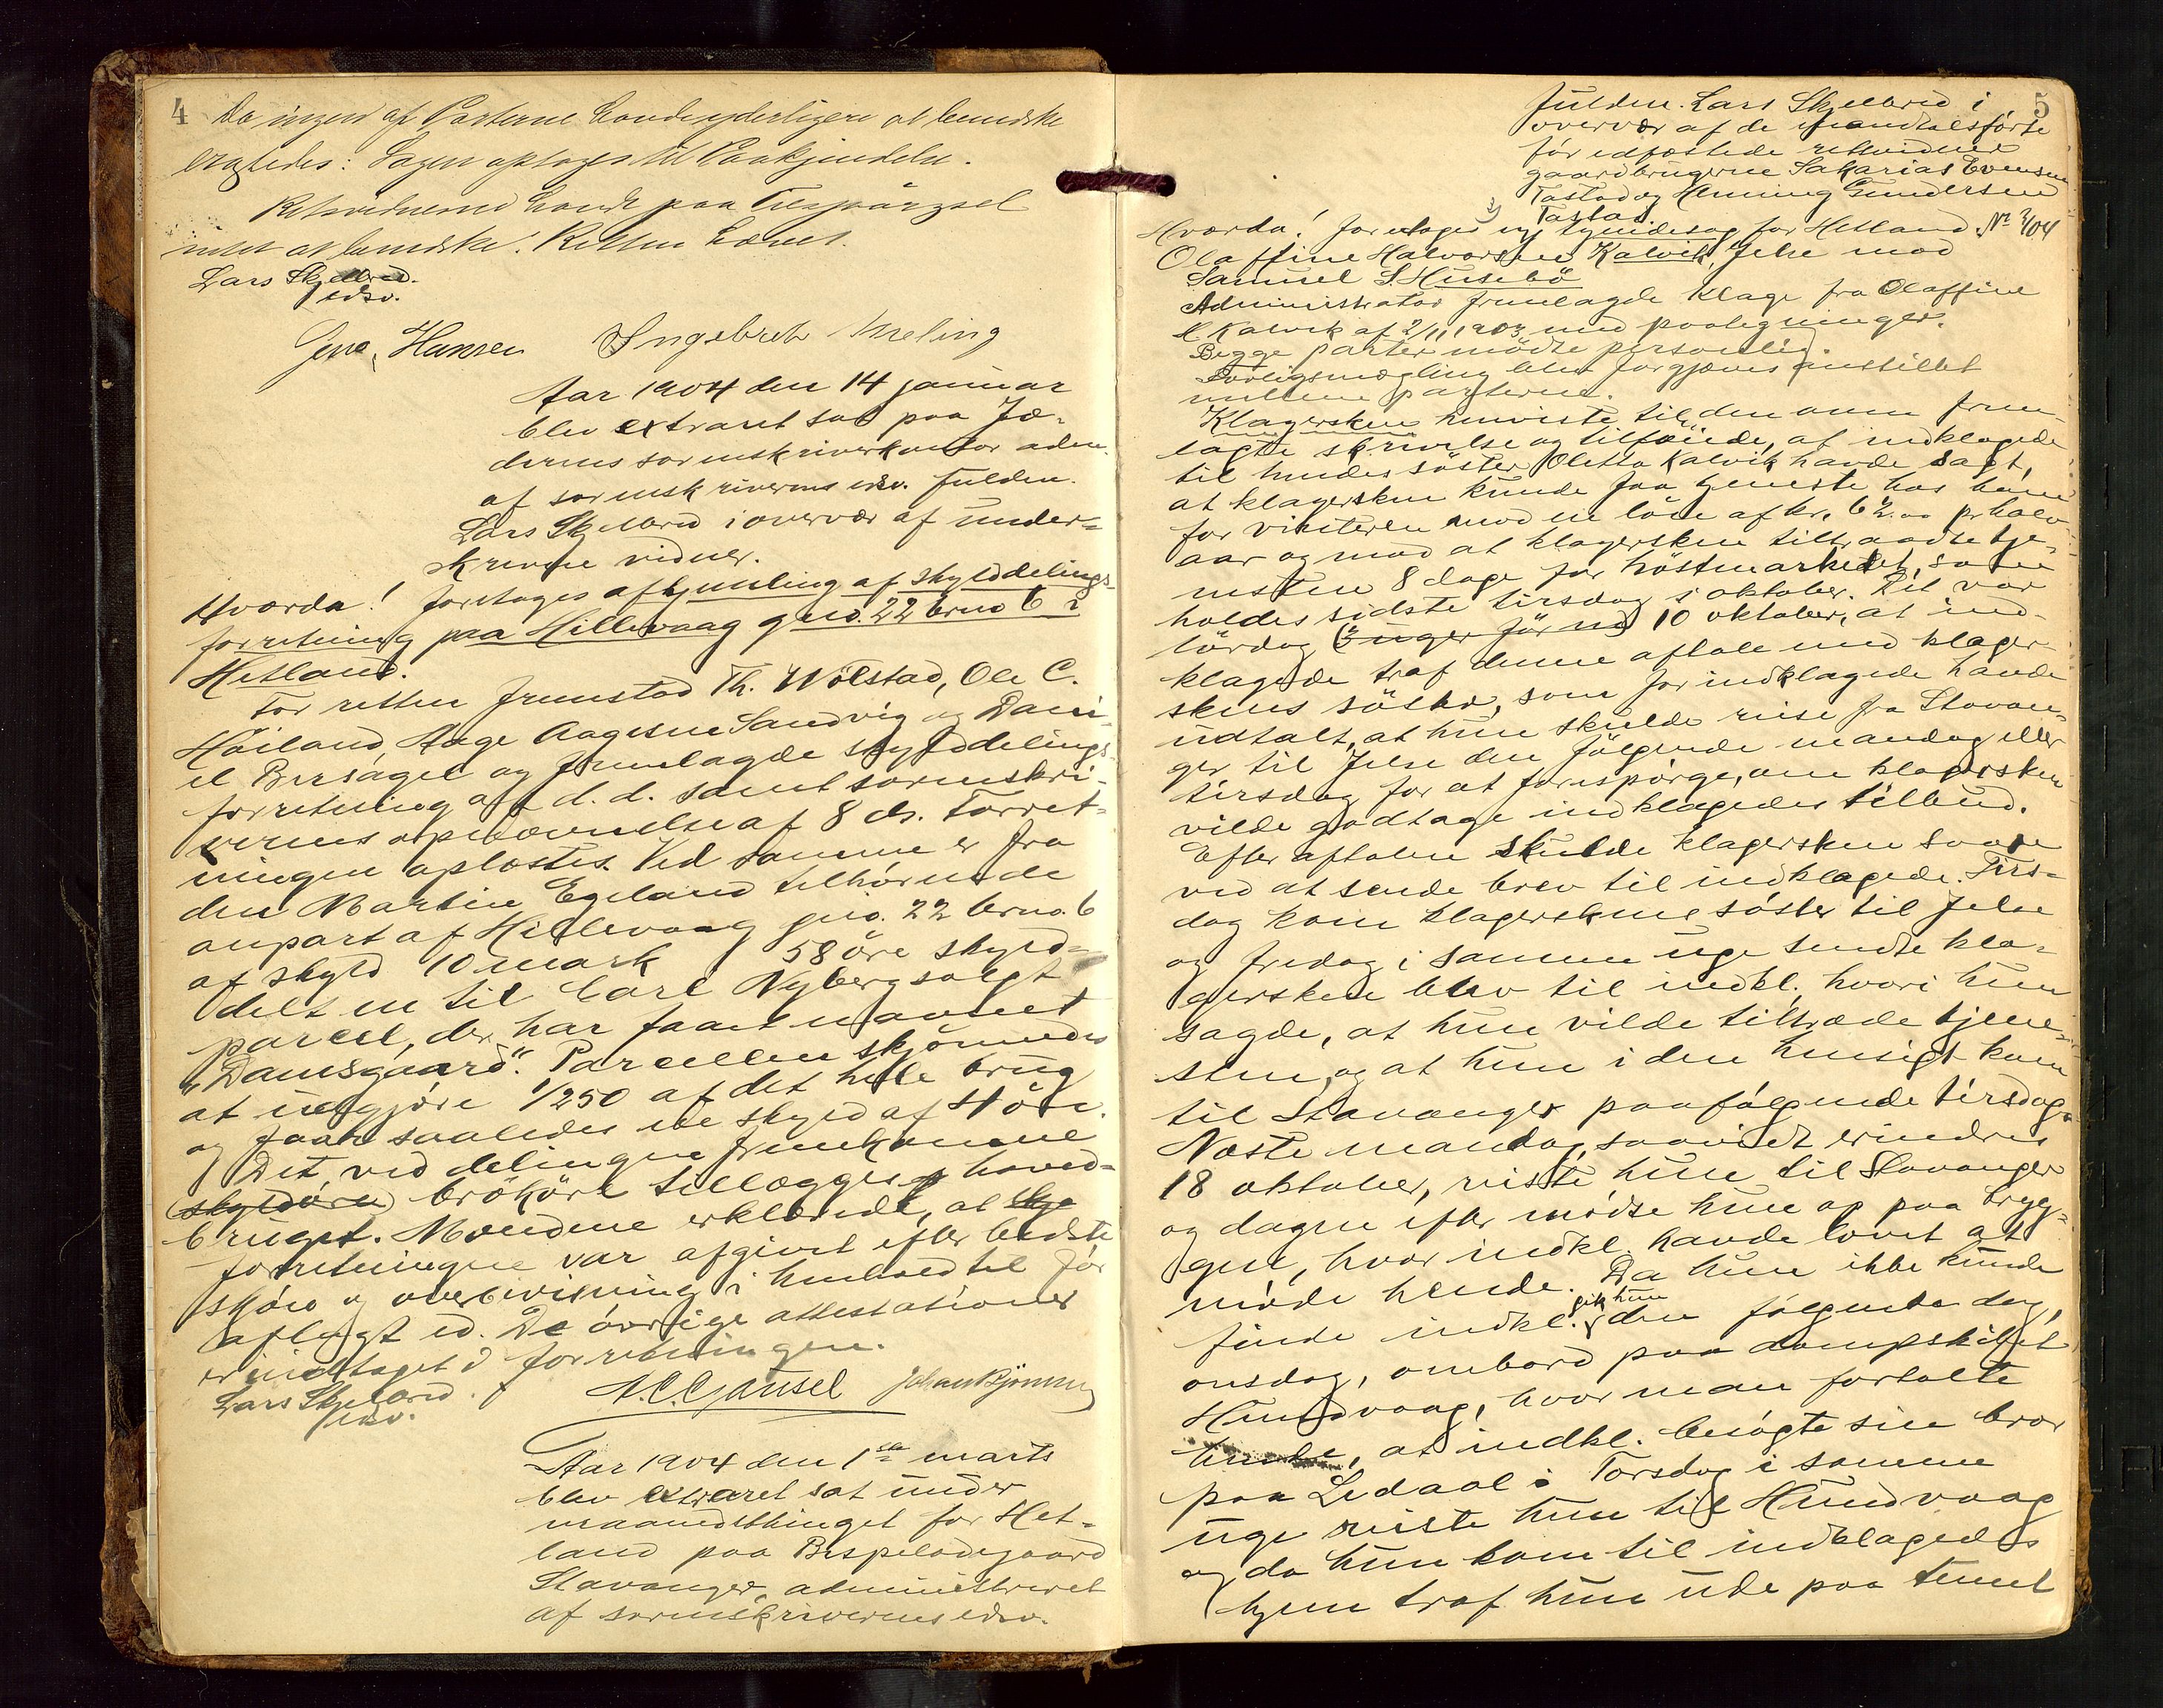 4
Da ingen af Parterne havde yderligere at bemerke
Sagen optages til Paakjendelse.
Retsvidnerne havde paa Tilspørgsel
intet at bemerke. Retten hævet.
Lars Skjelbred
edsv.
Jens Hansen Ingebret Meling
Aar 1904 den 14 januar
blev extraret sat paa Jæ-
derens sorenskriverkontor adm.
af sorenskriverens edsv. fuldm.
Lars Skjelbred i overvær af under-
skrevne vidner.
Hvorda! foretoges afhjemling af skylddelings-
forretning paa Hillevaag gno. 22 brno 6 i
Hetland.
For retten fremstod Th. Wølstad, Ole C.
Høiland, Aage Aagesen Sandvig og Dani-
el Bersagel og fremlagde skylddelings-
forretning af d. d. samt sorenskri-
verens opnævnelse af 8 ds. Forret-
ningen oplæstes. Ved samme er fra
den Martin Egeland tilhørende
anpart af Hillevaag gno. 22 brno. 6
af skyld 10 mark 58 øre skyld-
delt en til Carl Nyberg solgt
parcel, der har faaet navnet
"Damsgaard". Parcellen skjønnedes
at udgjøre 1/250 af det hele brug
og faar saaledes en skyld af 4 øre.
Det ved delingen fremkomne
skyldøre brøkøre tillægges hoved-
bruget. Mændene erklærede, at
forretningen var afgivet efter bedste
skjøn og overbevisning i henhold til før
aflagt ed. De øvrige attestationer
er indtaget i forretningen.
Lars Skjelbred
edsv.
A. C. Gausel Johan Bjønnes
Aar 1904 den 1ste marts
blev extraret sat under
maanedsthinget for Het-
land paa Bispeladegaard
Stavanger, administreret
af sorenskriverens edsv.
5
fuldm. Lars Skjelbred i
overvær af de mandtalsførte
før edfæstede retsvidner
gaardbrugerne Sakarias Evensen
Tastad og Henning Gundersen
Tastad.
Hvorda! foretoges ny tyendesag for Hetland No 2/04
Olaffine Halvorsen Kalvik, Jelse mod
Samuel S. Husebø
Administrator fremlagde klage fra Olaffine
H Kalvik af 2/11 1903 med paategninger.
Begge parter mødte personlig.
Forligsmægling blev forgjæves anstillet
mellem parterne.
Klagersken henviste til den frem-
lagte skrivelse og tilføiede, at indklagede
til hendes søster Oletta Kalvik havde sagt,
at klagersken kunde faa tjeneste hos ham
for vinteren mod en løn af kr. 62.00 pr halv-
aar og mod at klagersken tiltraadte tje-
nesten 8 dage før høstmarkedet, som
holdes sidste tirsdag i oktober. Det var
lørdag 10 oktober, at ind-
klagede traf denne aftale med klager-
skens søster, som for indklagede havde
udtalt, at hun skulde reise fra Stavan-
ger til Jelse den følgende mandag eller
tirsdag for at forespørge, om klagersken
vilde godtage indklagedes tilbud.
Efter aftalen skulde klagersken svare
ved at sende brev til indklagede. Tirs-
dag kom klagerskens søster til Jelse
og fredag i samme uge sendte kla-
gersken brev til indkl. hvori hun
sagde, at hun vilde tiltræde tjene-
sten, og at hun i den hensigt kom
til Stavanger paafølgende tirsdag.
Næste mandag, saavidt erindres
18 oktober, reiste hun til Stavanger
og dagen efter mødte hun op paa bryg-
gen, hvor indkl. havde lovet at
møde hende. Da hun ikke kunde
finde indkl. gik hun den følgende dag,
onsdag, ombord paa dampskibet
Hundvaag, hvor man fortalte
hende, at indkl. besøgte sin bror
paa Ledaal. Torsdag i samme
uge reiste hun til Hundvaag
og da hun kom til indklagedes
hjem traf hun ude paa tunet